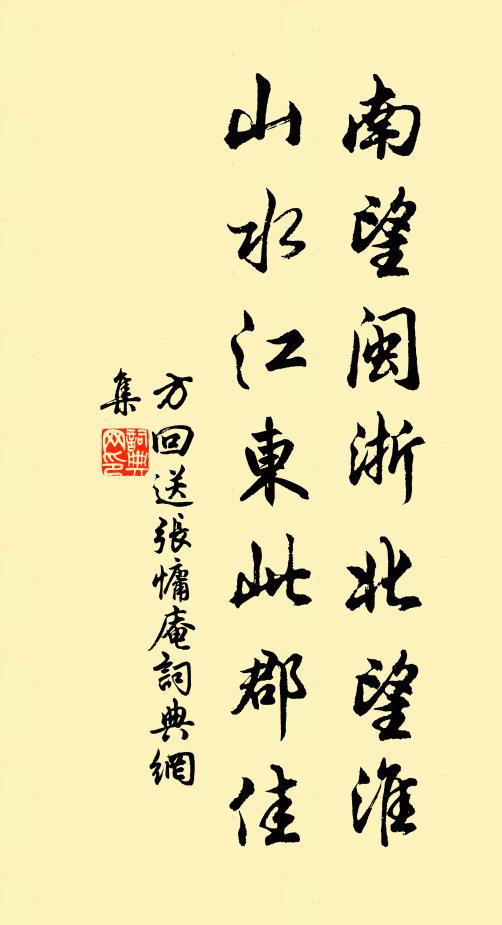 南望閩浙北望淮
山水江東此郡佳
方回送張慵庵詞典網
集
詞典網印